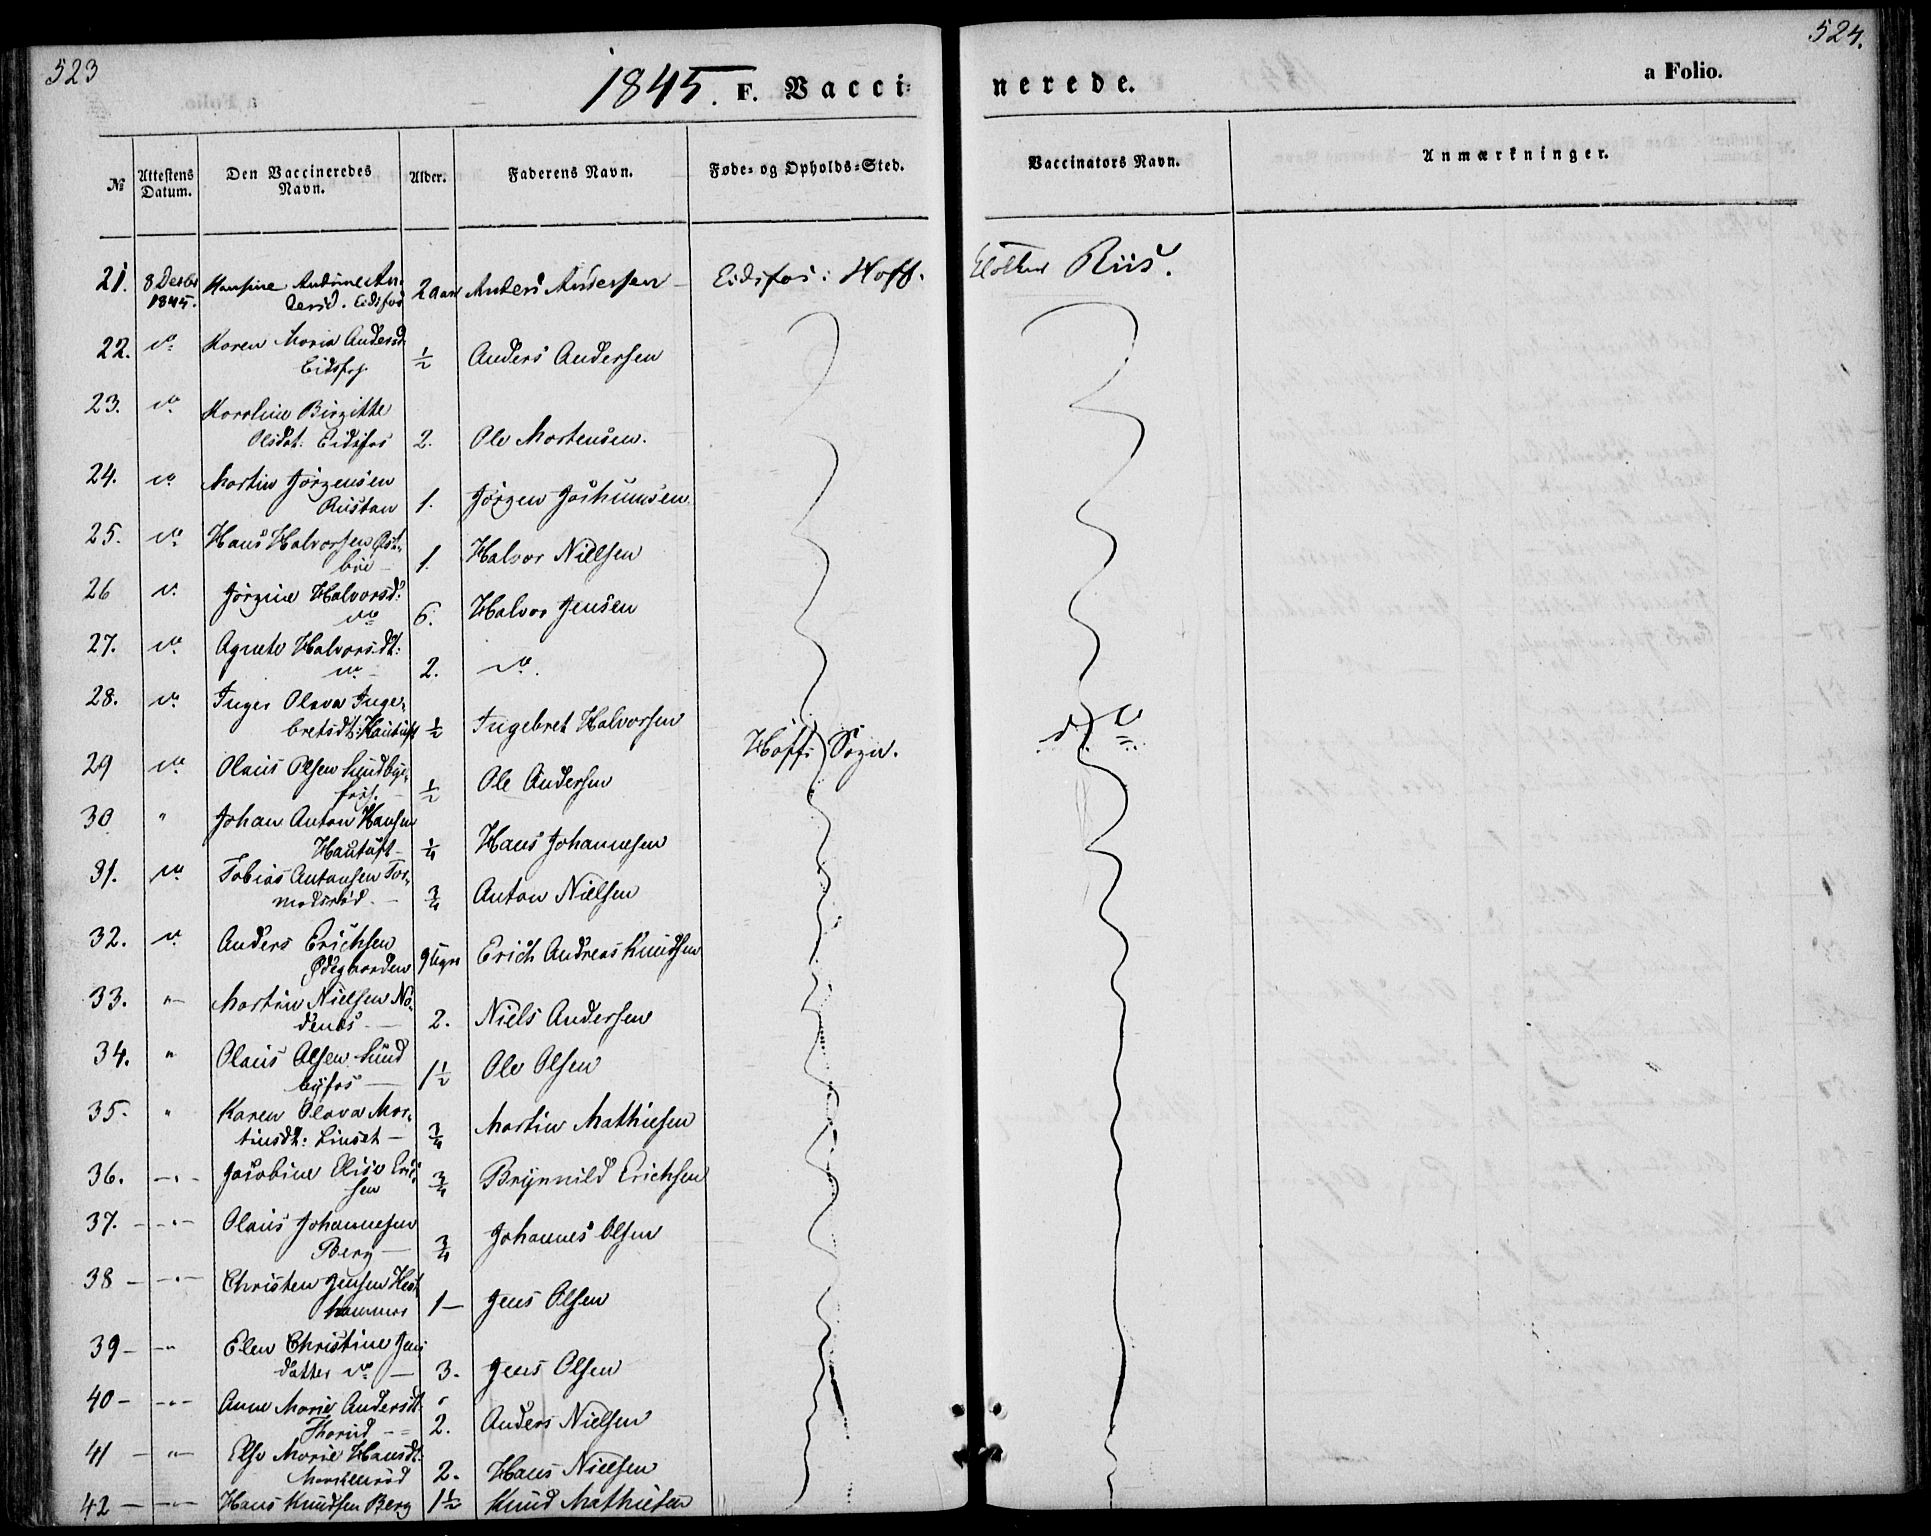 523
524.
1845. F. Vacci-
nerede.
a Folio.
№
Attestens Datum.
Den Vaccineredes Navn.
Alder.
Faderens Navn.
Føde- og Opholds-Sted.
Vaccinators Navn.
Anmærkninger.
21. 8 Decbr 1845. Hansine Andrine An-
dersd. Eidsfos 2 aar Anders Andersen Eidsfos i Hoff. Riis.
22. do Karen Maria Andersd.
Eidsfos ½ Anders Andersen
23. do Karoline Birgitte
Olsdat. Eidsfos 2. Ole Mortensen.
24. do Martin Jörgensen
Rustan 1. Jörgen
25. do Hans Halvorsen Øst-
bøe 1. Halvor Nielsen
26 do Jörgine Halvorsd:
do 6. Halvor Jensen
27. do Agnete Halvorsdt:
do 2. do.
28. do Inger Olava Inge-
bretsdt: Hautuft ½ Ingebret Halvorsen
Hoffs Sogn. do
29 do Olaus Olsen Sundbye-
fos. ½ Ole Andersen
30 " Johan Anton Hansen
Hautuft ¼ Hans Johannesen
31. do Tobias Antonsen Tor-
modsröd. ¾ Anton Nielsen
32. do Anders Erichsen
Ødegaarden 9 Uger Erich Andreas Knudsen
33. " Martin Nielsen Nö-
denes 2. Niels Andersen
34. " Olaus Olsen Sund
byfos 1½ Ole Olsen
35. " Karen Olava Mar-
tinsdt: Linset ¾ Martin Mathiesen
36. " Jacobine Elise Erich-
sen ¾ Brynnild Erichsen
37. " Olaus Johannesen
Berg ¾ Johannes Olsen
38 " Christen Jensen Hest
hammer 1 Jens Olsen
39 " Elen Christine Jens
datter do 3. Jens Olsen
40 " Anne Marie Andersdt
Thorud 2. Anders Nielsen
41 " Else Marie Hansdt.
2. Hans Nielsen
42 " Hans Knudsen Berg 1½ Knud Mathiesen